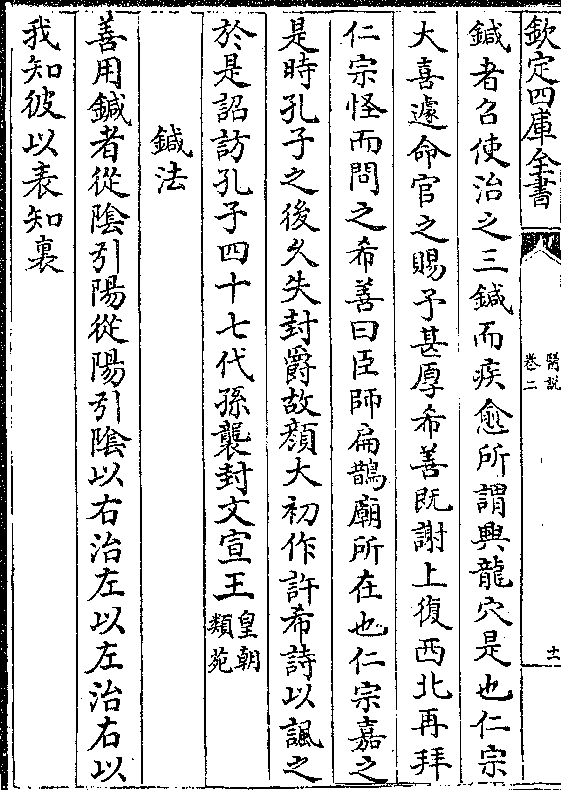 欽定四庫全書
醫說
卷二
十一
鍼者召使治之三鍼而疾愈所謂興龍穴是也仁宗
大喜遽命官之賜予甚厚希善既謝上復西北再拜
仁宗怪而問之希善曰臣師扁鵲廟所在也仁宗嘉之
是時孔子之後久失封爵故顏大初作許希詩以諷之
於是詔訪孔子四十七代孫襲封文宣王皇朝
類苑
鍼法
善用鍼者從陰引陽從陽引陰以右治左以左治右以
我知彼以表知裏